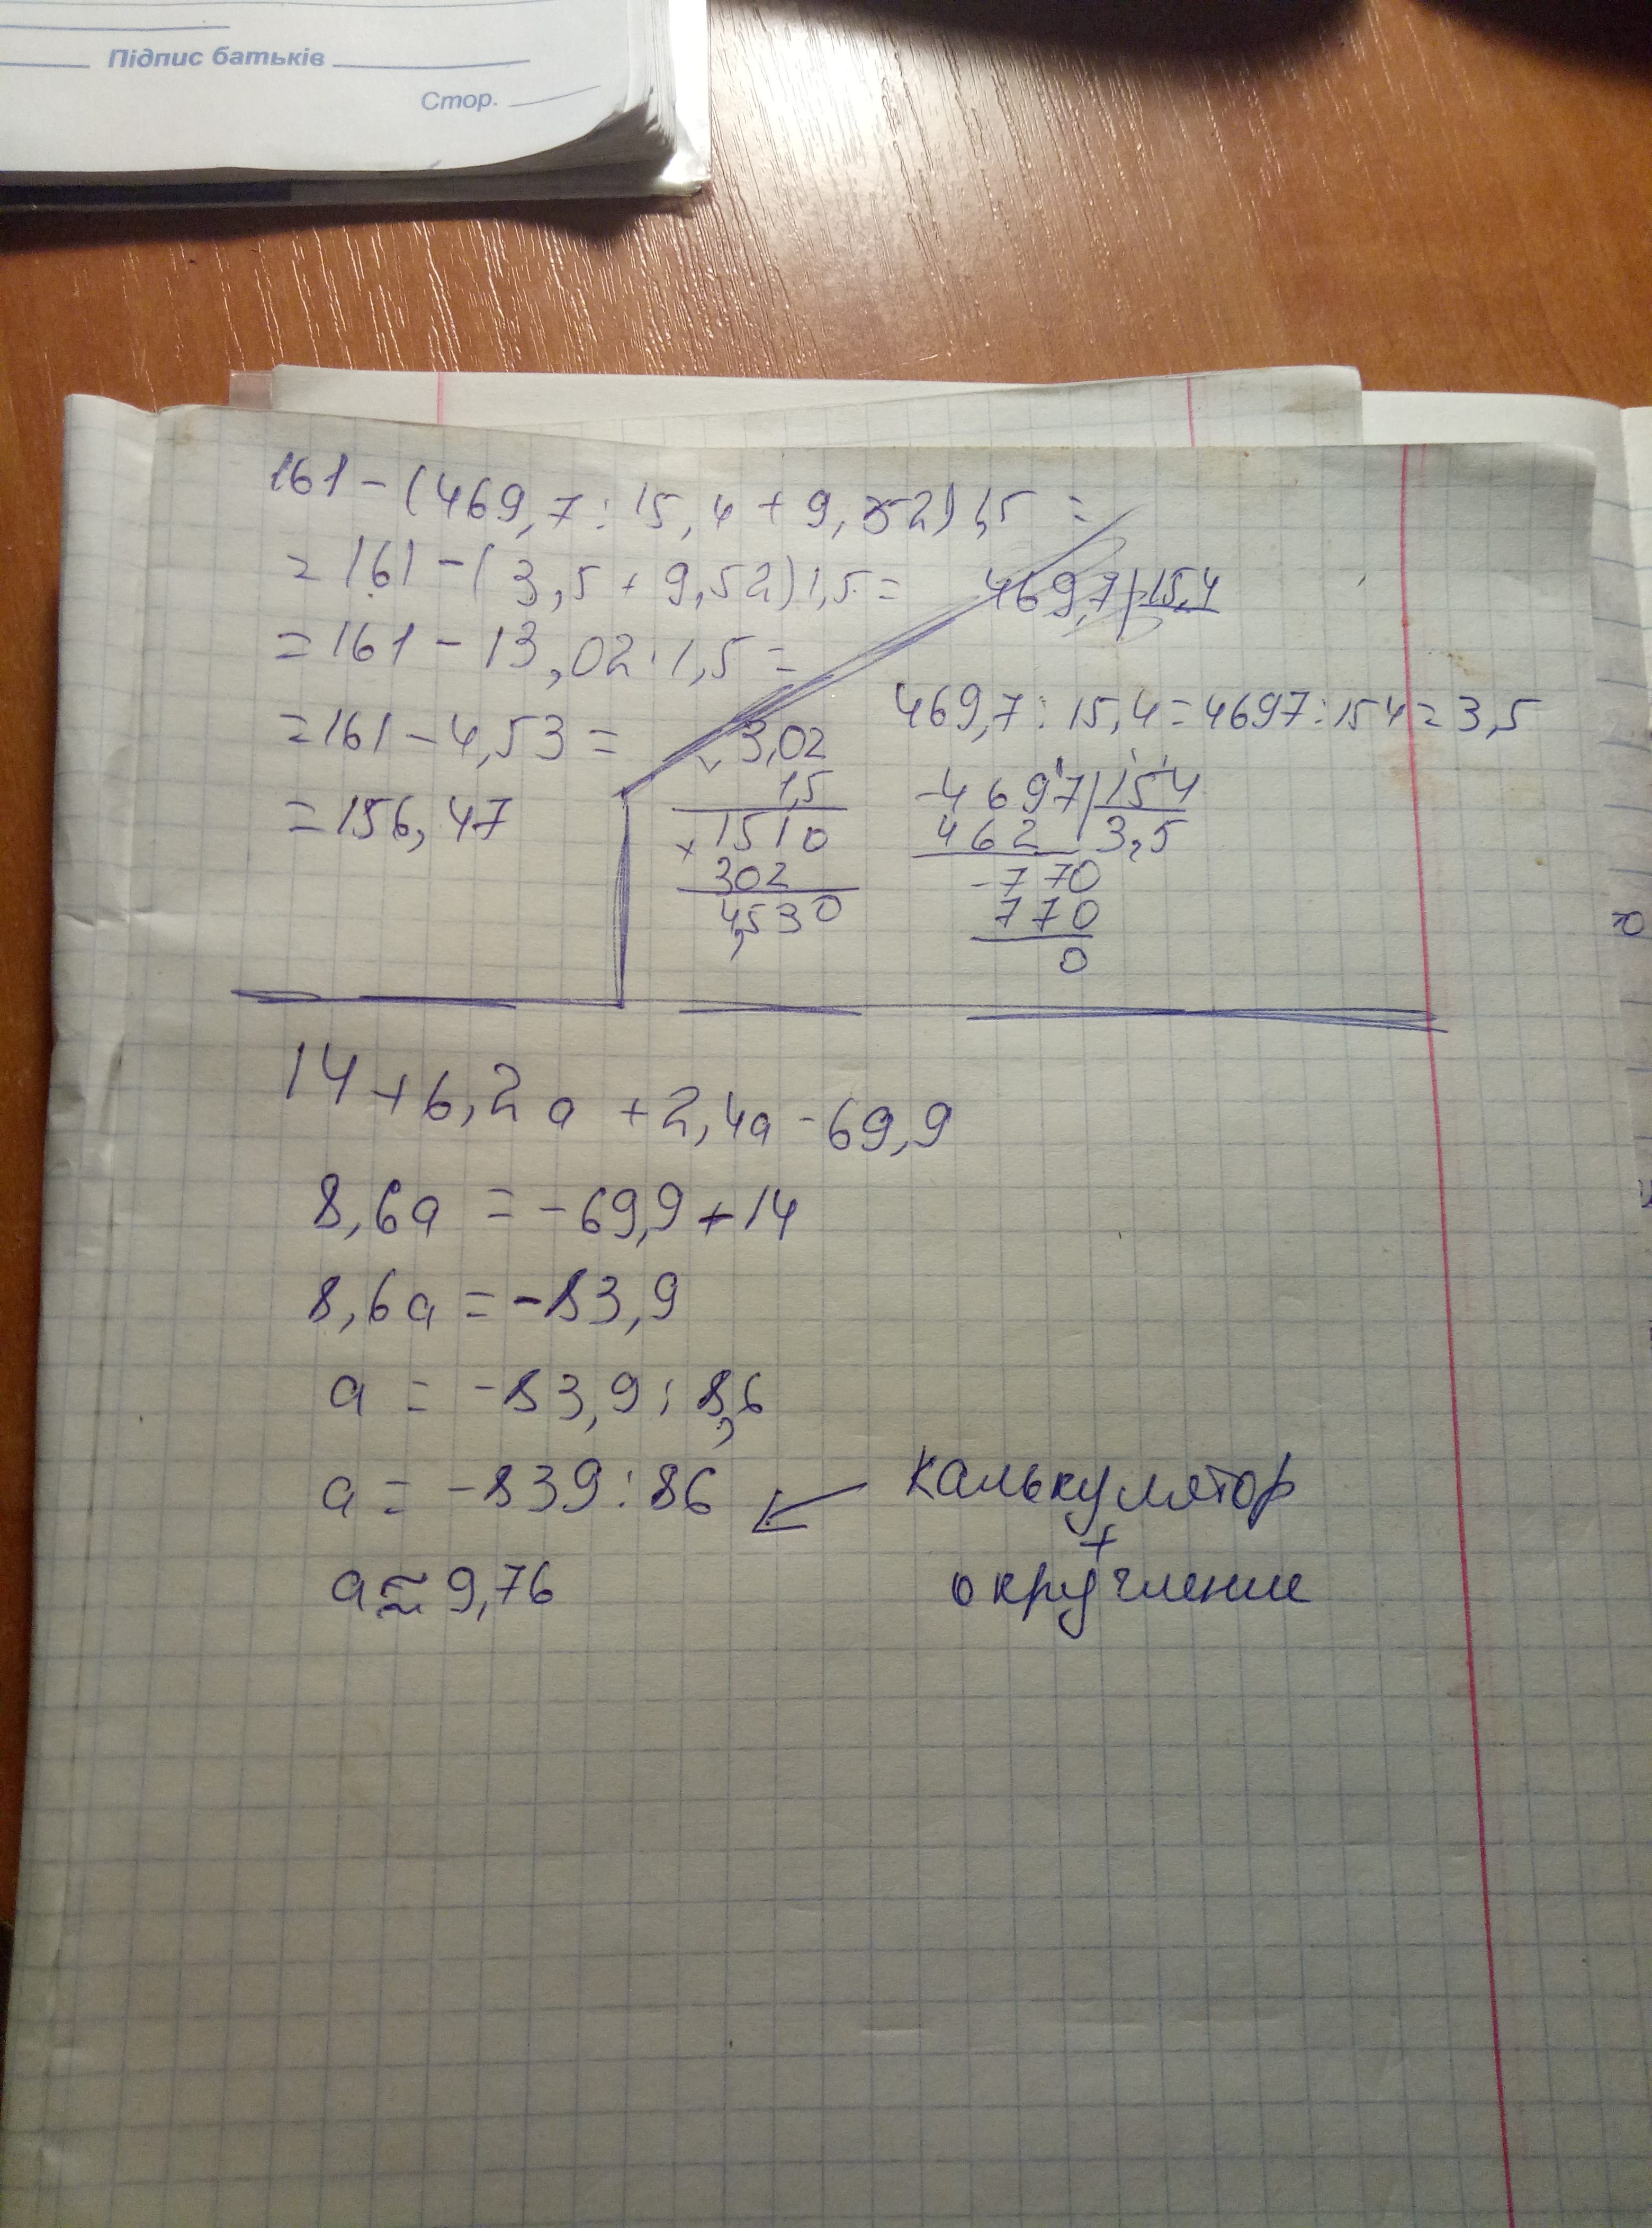 Підпис батьків
Стор.
161 - (469,7 : 15,4 + 9,52) 1,5 =
= 161 - (3,5 + 9,52) 1,5 =
469,7 | 15,4
= 161 - 13,02 · 1,5 =
469,7 : 15,4 = 4697 : 154 = 3,5
= 161 - 4,53 =
= 156,47
3,02
1,5
1510
× 302
4,530
-4697 | 154
462 3,5
-770
770
0
14 + 6,2a + 2,4a - 69,9
8,6a = -69,9 + 14
8,6a = -83,9
a = -83,9 : 8,6
a = -839 : 86
калькулятор
+
округление
a ≈ 9,76